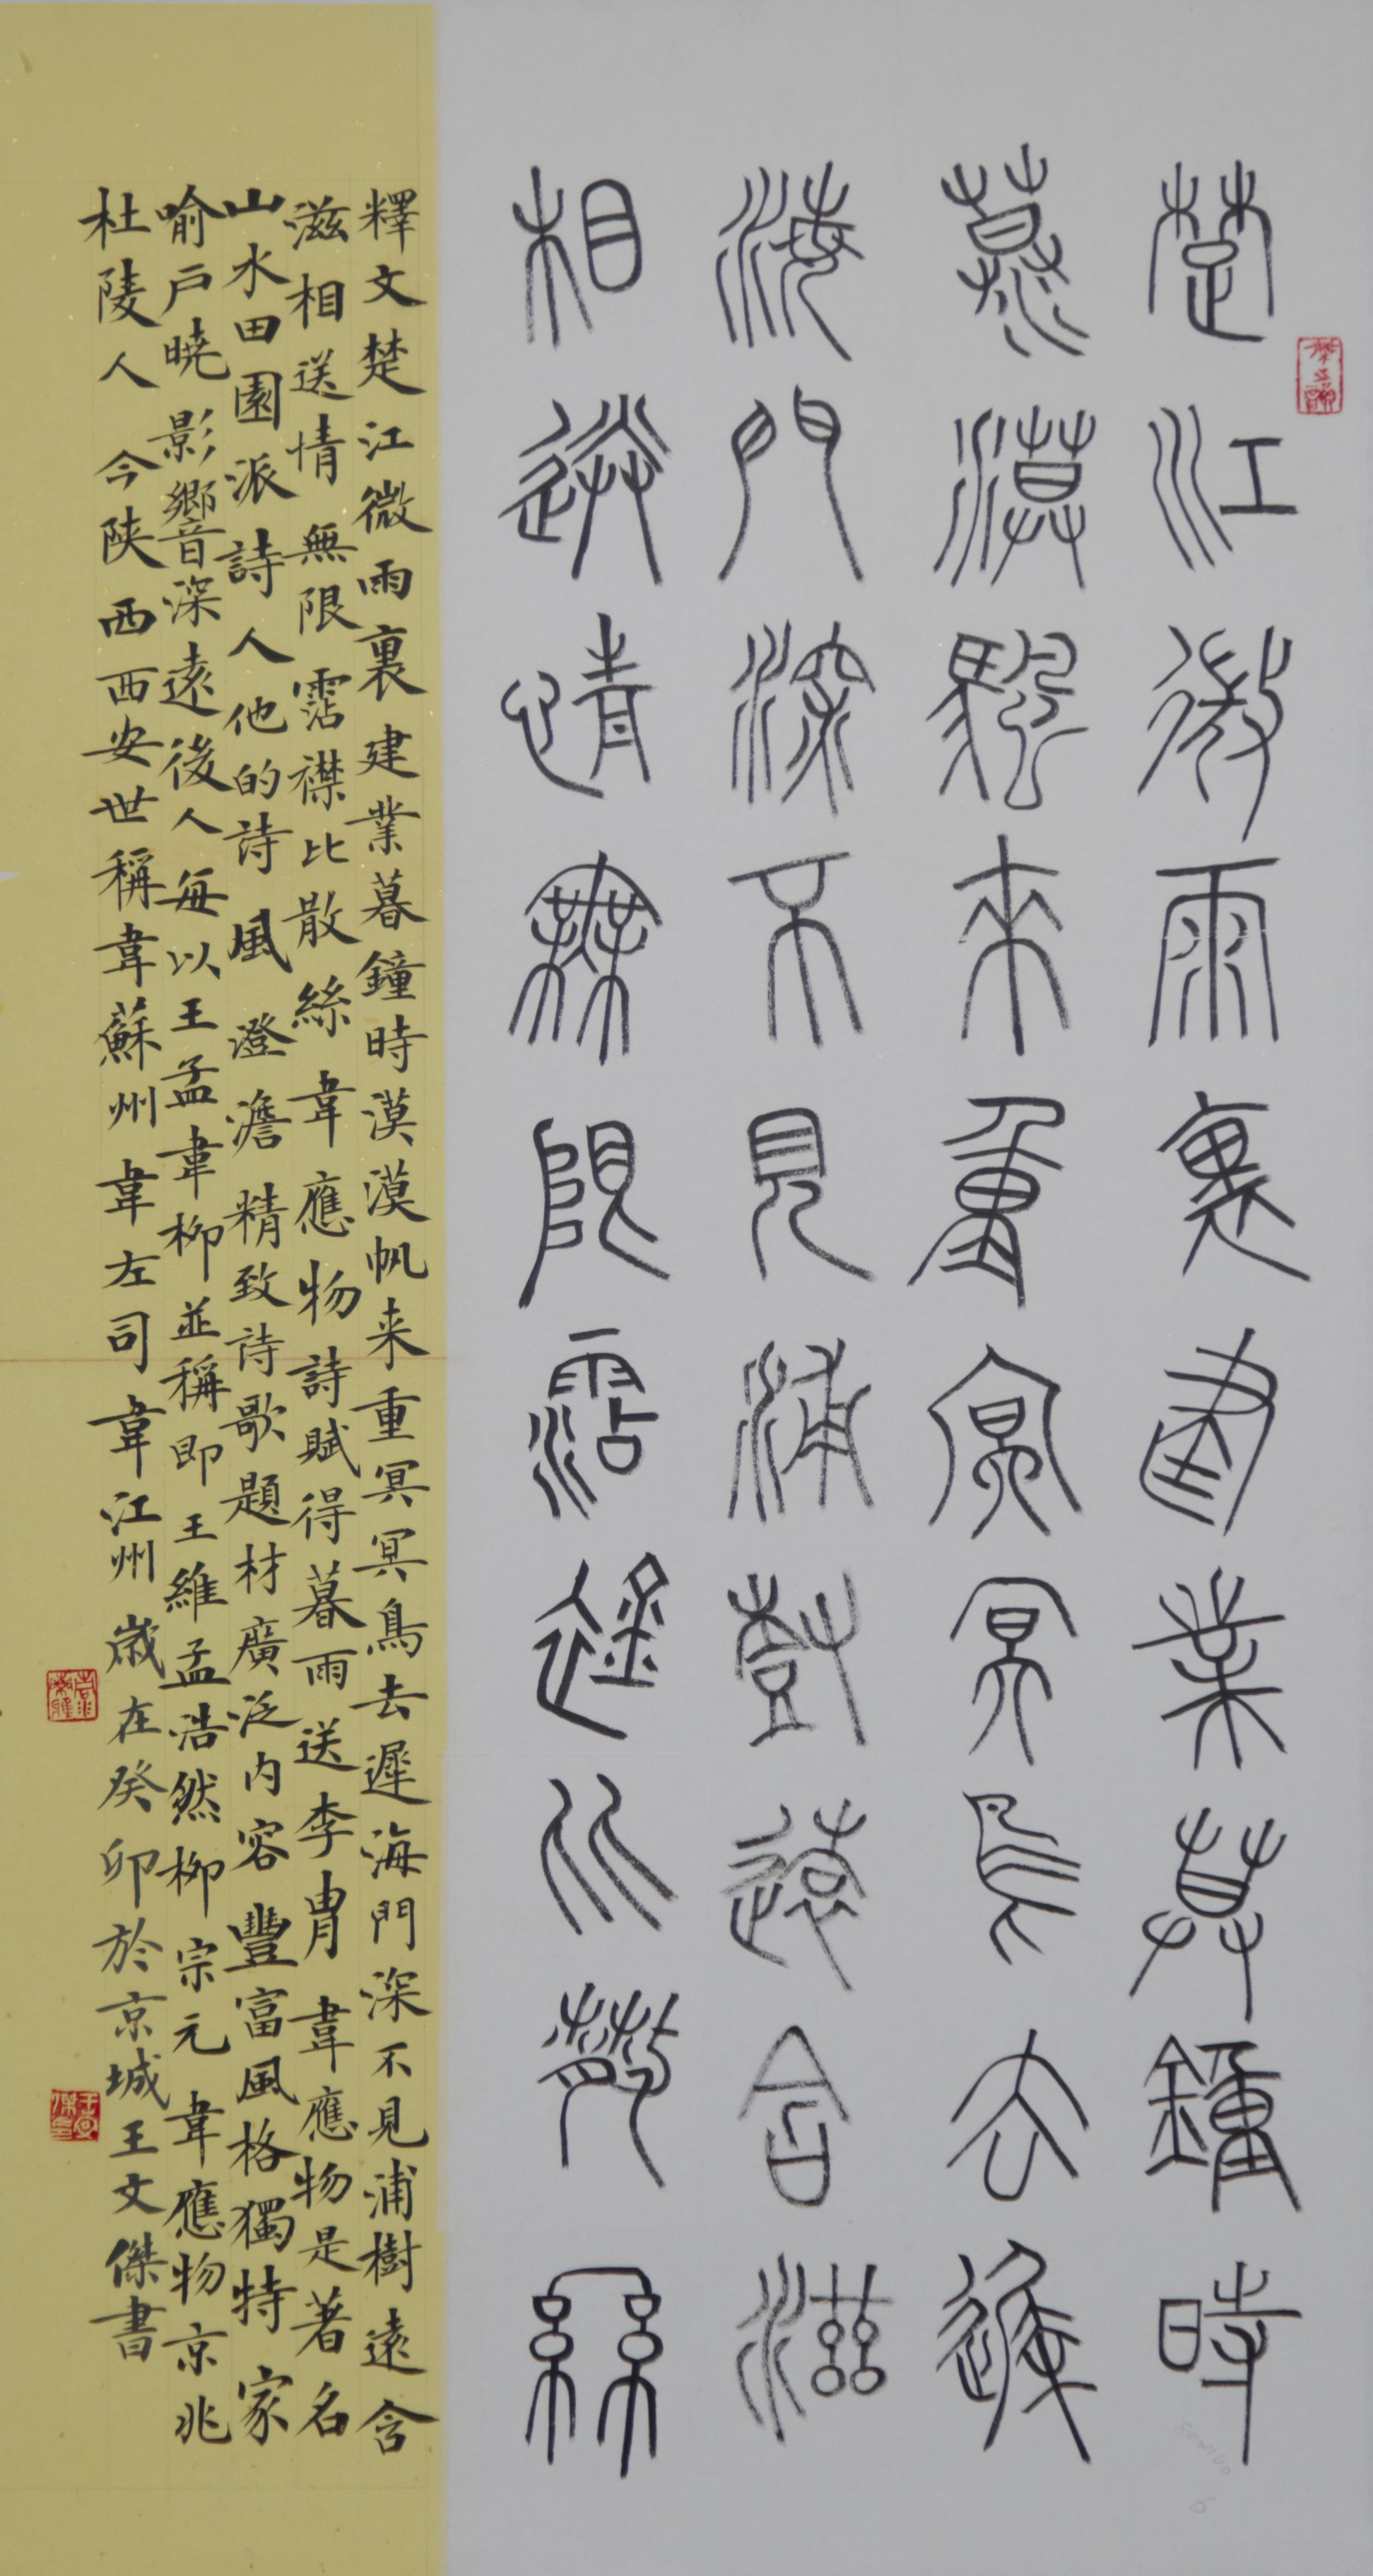 楚江微雨裏建業莫鐘時
漠颿來重冥冥鳥去遲
海門深不見浦樹遠含滋
相送情無限霑比散絲
釋文楚江微雨裏建業暮鐘時漠漠帆来重冥冥鳥去遲海門深不見浦樹遠含
滋相送情無限霑襟比散絲韋應物詩賦得暮雨送李冑韋應物是著名
山水田園派詩人他的詩風澄澹精致诗歌題材廣泛内容豐富風格獨特家
喻戶曉影響深遠後人每以王孟韋柳並稱即王維孟浩然柳宗元韋應物京兆
杜陵人今陕西西安世稱韋蘇州韋左司韋江州歲在癸卯於京城王文傑書